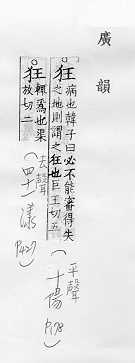 廣韻
狂 病也韓子曰心不能審得失
之地則謂之狂也巨王切五
(平聲 十陽
狂 輒為也渠
放切二
(去聲) 四十一漾